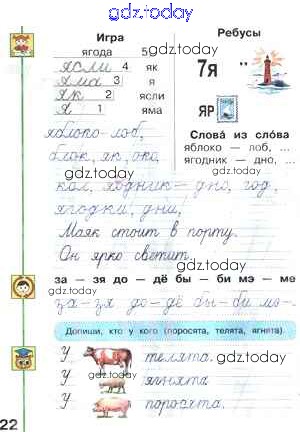 gdz.today
Игра
ягода 5
gdz.today
ясли 4 як
яма 3 я
як 2 ясли
я 1 яма
gdz.today
Ребусы
7я "
ЯР
gdz.today
Слова из слова
яблоко — лоб, ...
ягодник — дно, ...
gdz.today
яблоко-лоб,
блок, як, око,
gdz.today
кол, ягодник — дно, год,
ягодки, дни,
gdz.today
Маяк стоит в порту.
Он ярко светит.
gdz.today
за — зя до — дё бы — би мэ — ме
gdz.today
за-зя до-дё бы-би мэ-
Допиши, кто у кого (поросята, телята, ягнята).
У телята.
gdz.today
У ягнята.
У поросята.
gdz.today
22